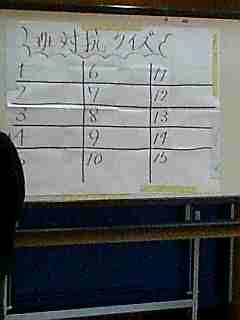 班対抗クイズ
1 6 11
2 7 12
3 8 13
4 9 14
10 15